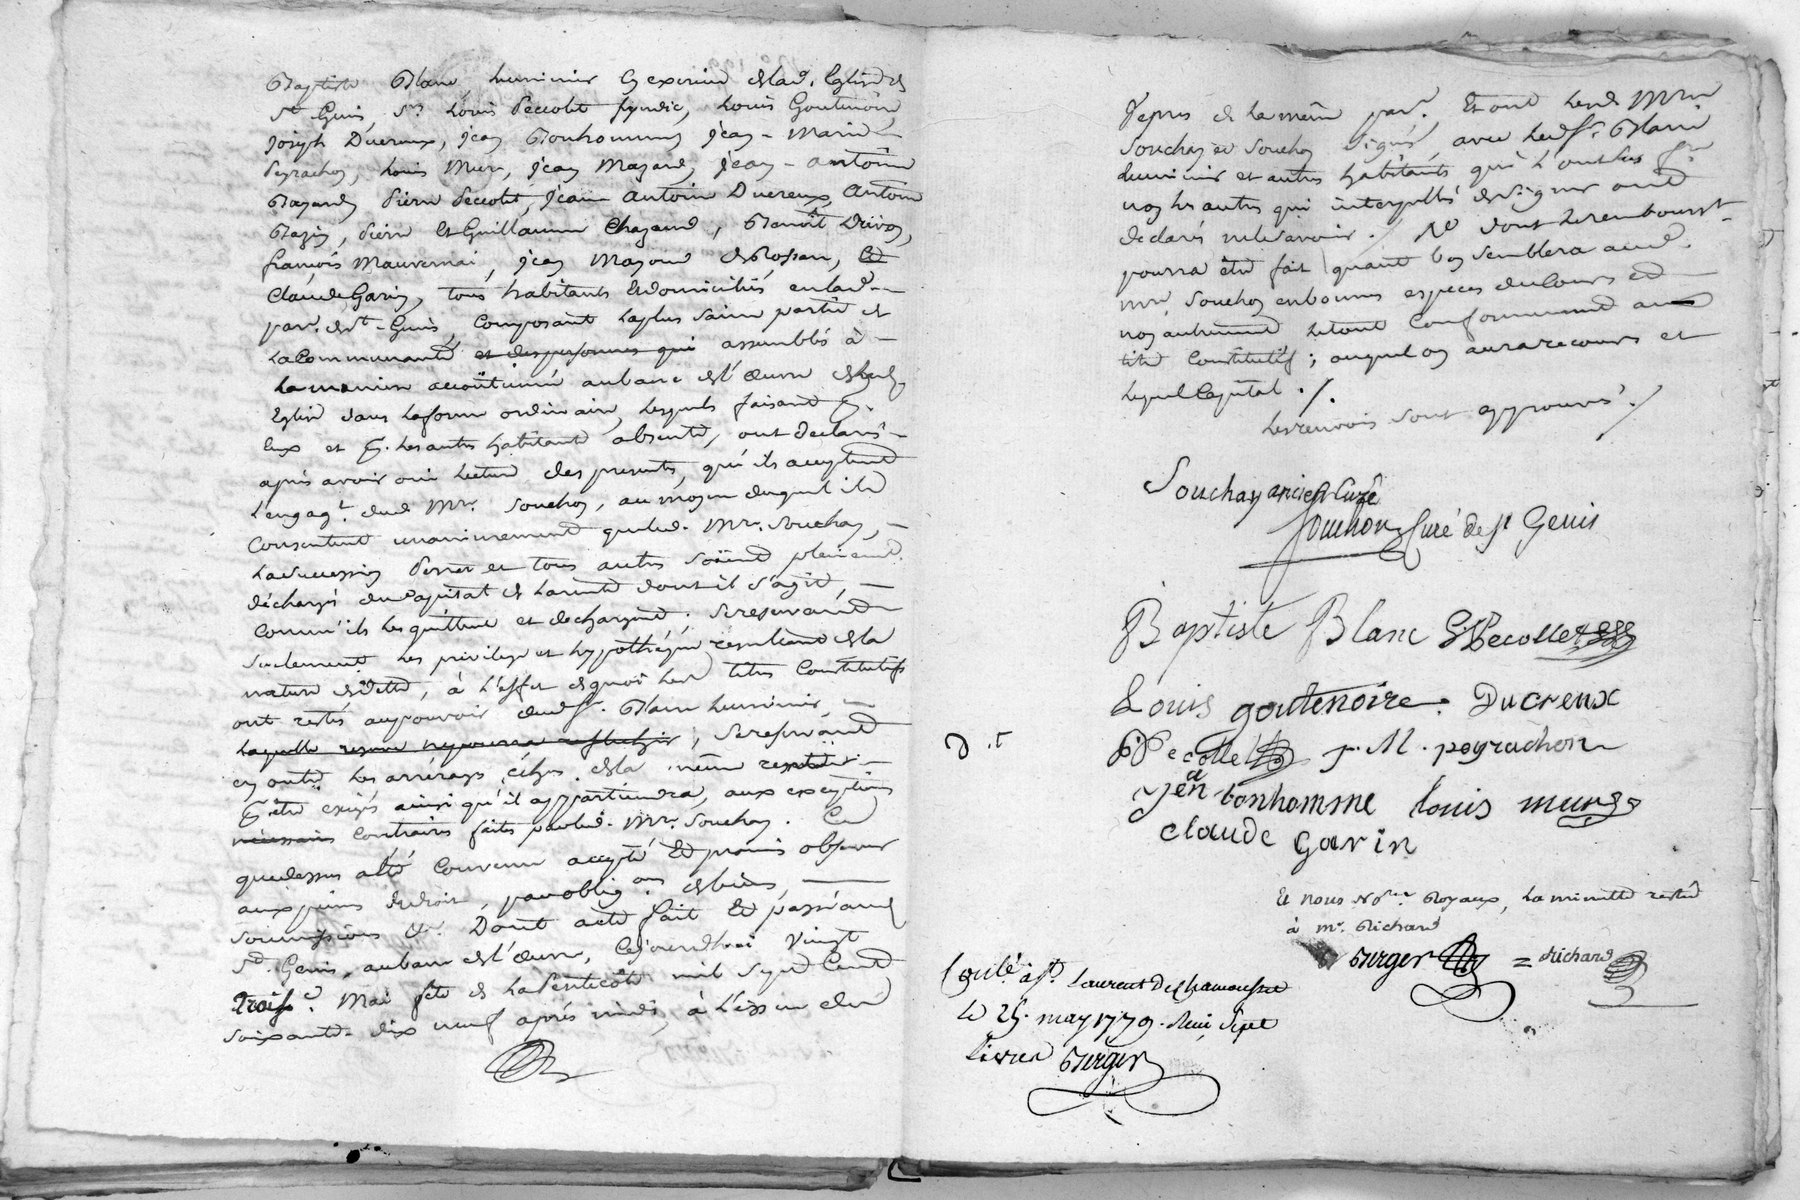 Baptiste Blanc luminier en exercice de lad. Eglise de
St Genis, Sr. Louis Pecollet syndic, Louis Goutenoire,
Joseph Ducreux, jean Bonhomme, jean - Marie
Peyrachon, Louis Mure, jean Mazard, jean - antoine
Bazard, Pierre Pecollet, jean antoine Ducreux, antoine
Bazin, Pierre et Guillaume Chazaud, Benoît
françois Mauvernai, jean Mazard et
Claude Garin, tous habitants et domiciliés en lad.
par. de St - Genis, composant la plus saine partie de
la Communauté et des personnes qui assemblés à
la maniere accoûtumée au banc de l'oeuvre de lad.
Eglise dans la forme ordinaire, lesquels faisant p.
eux et p. les autres habitants absents, ont déclaré
après avoir oui lecture des presentes, qu'ils acceptent
l'engagt. dud. Mr. Souchay, au moyen duquel ils
Consentent unanimement que led. Mr. Souchay,
la succession Perret et tous autres soient pleinemt.
déchargés du capital et la rente dont il s'agit,
Comm'ils les quittent et dechargent; se reservant
seulement les privilege et hypothéque resultant de la
nature de dette, à l'effet de quoi les titres Constitutifs
ont restés au pouvoir dud. sr. Blanc luminier,
laquelle reserve ne pourra ; se reservant
en outre les arrérages échus de la même
p. être exigés ainsi qu'il appartiendra, aux exceptions
contraires faites par led. Mr. Souchay. Ce
que dessus a été convenu accepté et promis observer
aux peines de droit, par obligons. de biens,
soumissions &c. Dont acte fait et passé aud.
St. Genis, au banc de l'oeuvre, Cejourdhui vingt
trois Mai fête de la Pentecôte mil sept Cent
soixante - dix neuf après midi, à l'issue des
Vepres de la même par. Et ont lesd. Mrs.
Souchay et Souchon signé, avec led. sr. Blanc
luminier et autres habitants qui l'ont sçu fre.
non les autres qui interpellés de signer ont
declaré ne le savoir. / dont le rembourst.
pourra être fait quand bon semblera aud.
Mr. Souchay en bonnes especes du Cours et
non autrement le tout Conformement au
titre Constitutif; auquel on aura recours et
lequel Capital ./.
Les renvois sont approuvés ./
Souchay ancien Curé
Souchon Curé de St Genis
Baptiste Blanc Pecollet
Louis goutenoire. Ducreux
P. Pecollet j. M. peyrachon
jean bonhomme louis mure
claude Garin
Et nous Nores. Royaux, la minutte restée
à Mr. Richard
Burger = Richard
Controlé à St. Laurent de Chamousset
le 25. may 1779. Reçu sept
livres Burger